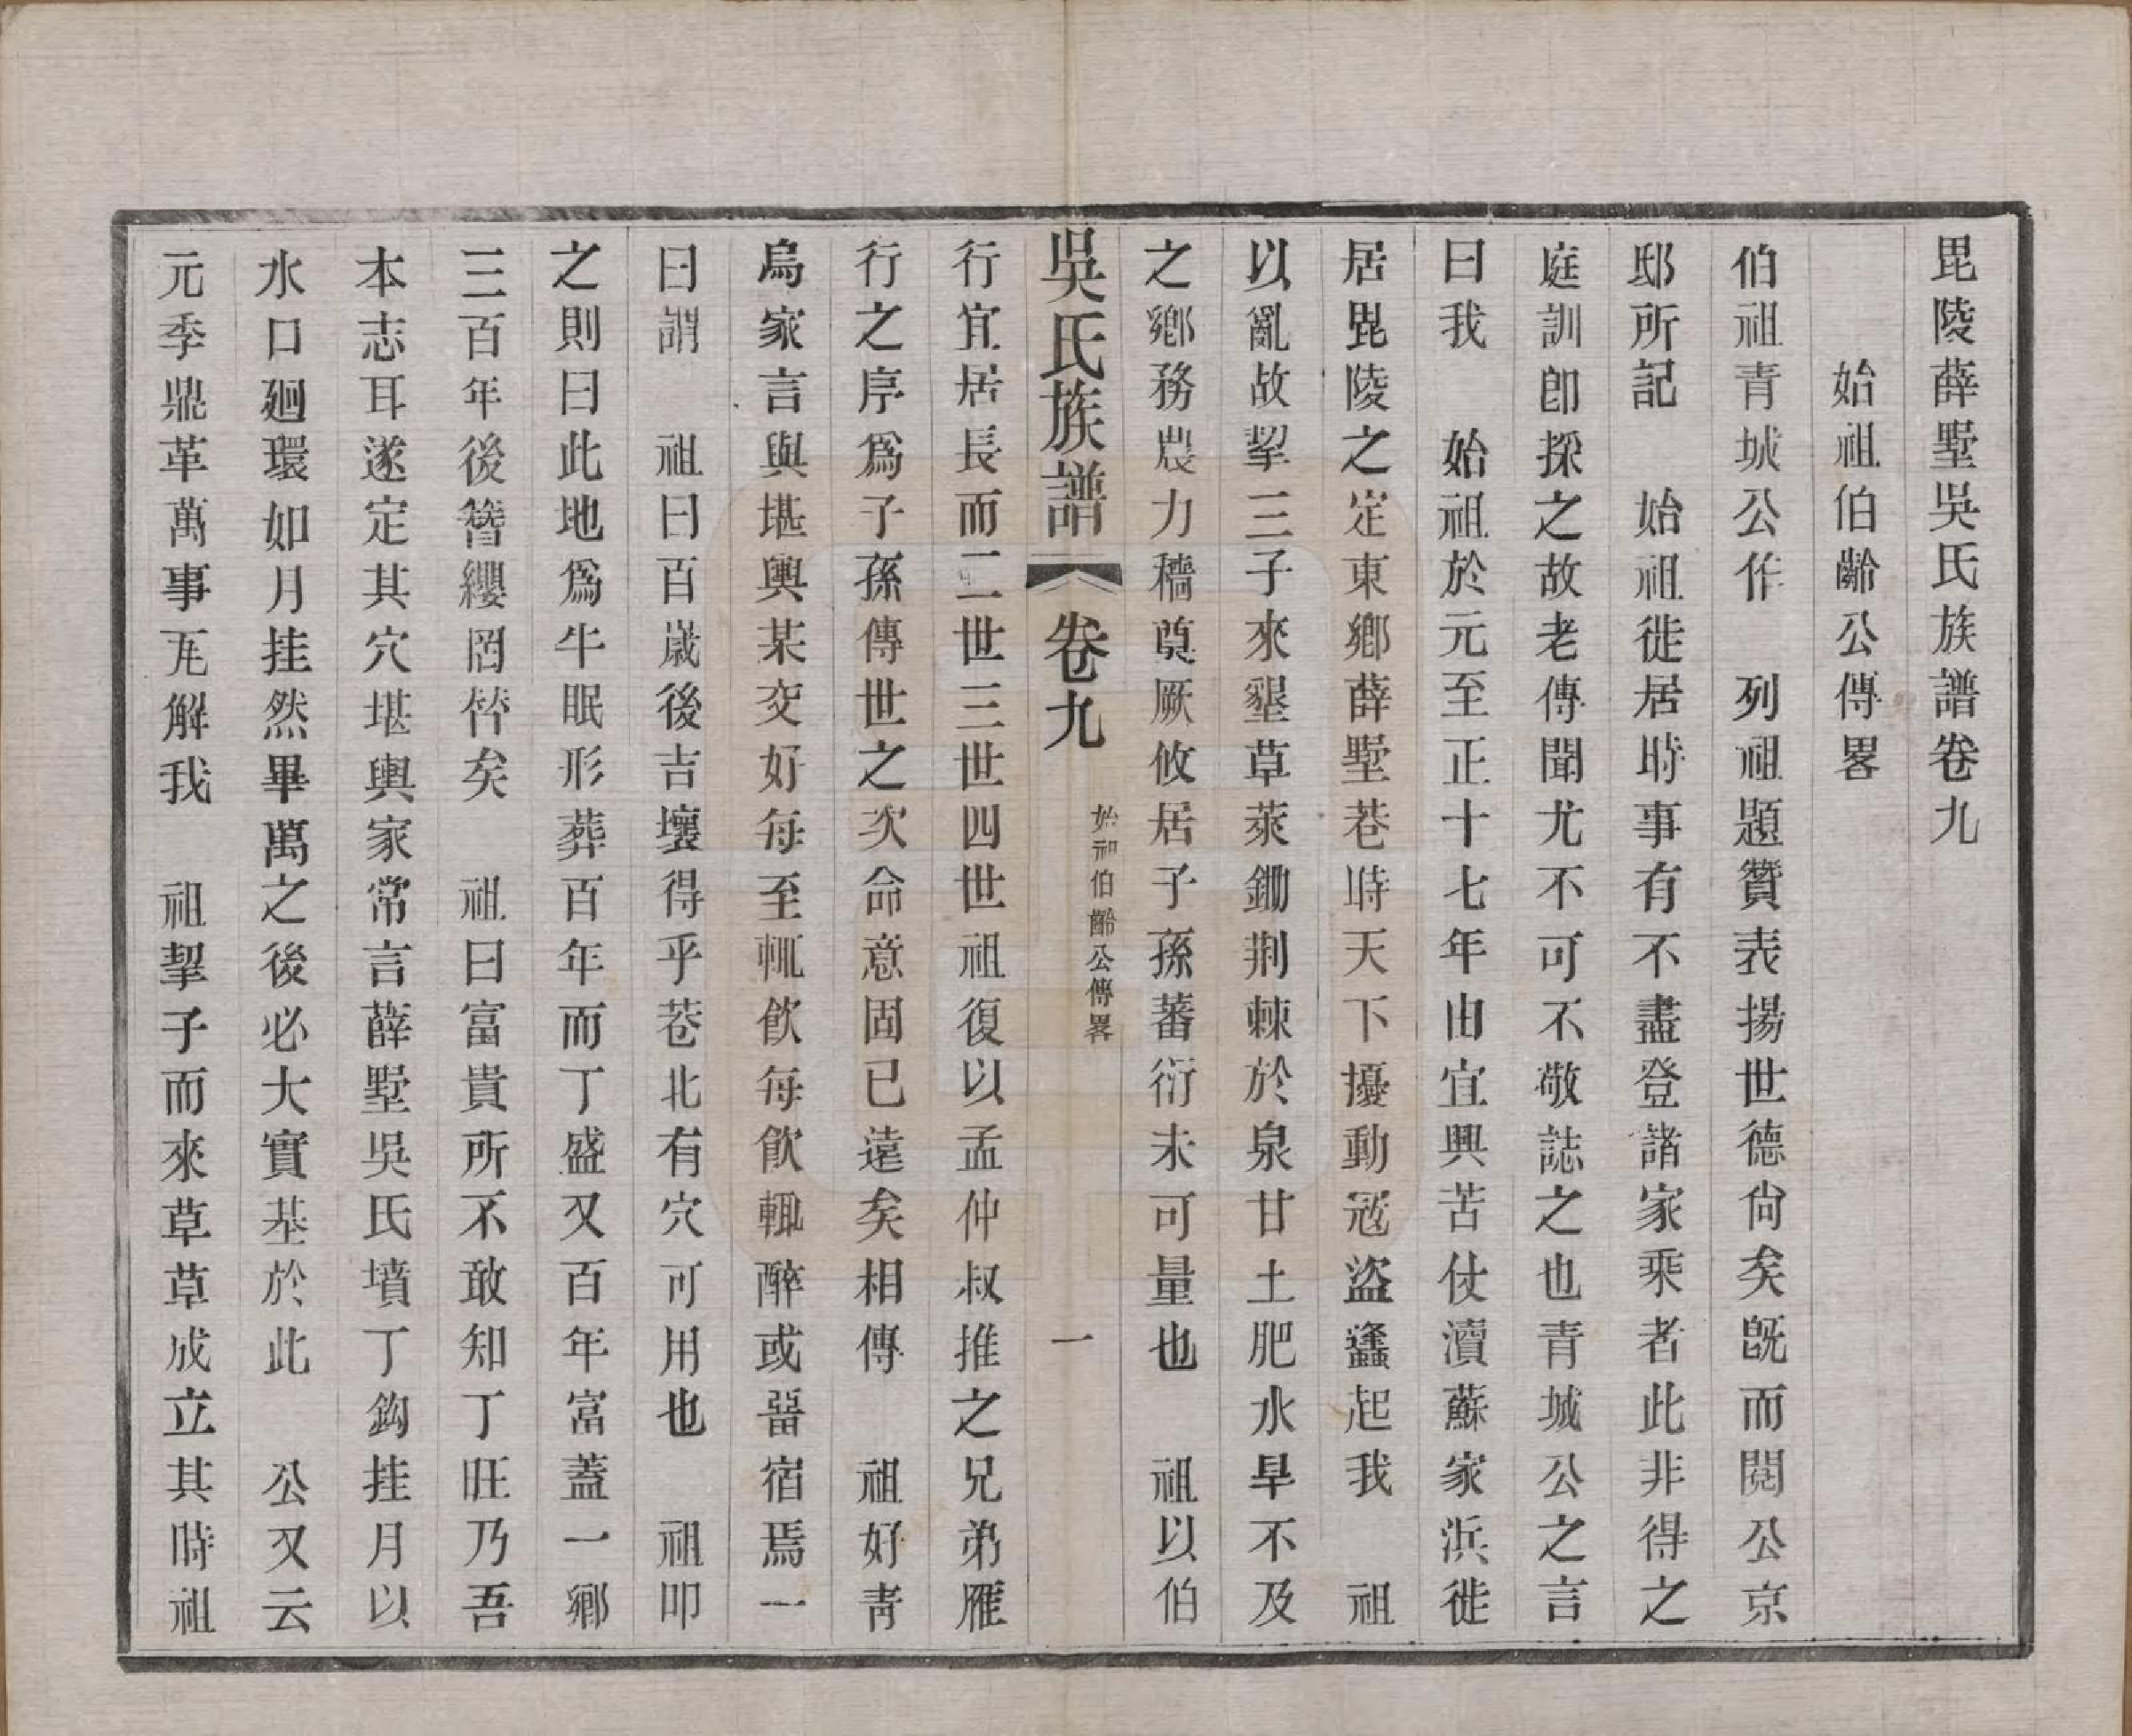 毘陵薛墅吳氏族譜卷九
始祖伯齡公傳畧
伯祖青城公作　列祖題贊表揚世德尙矣旣而閱公京
邸所記　始祖徙居時事有不盡登諸家乘者此非得之
庭訓卽採之故老傳聞尤不可不敬誌之也青城公之言
曰我　始祖於元至正十七年由宜興苦仗瀆蘇家浜徙
居毘陵之定東鄉薛墅巷時天下擾動冦盜蠭起我　祖
以亂故挈三子來墾草萊鋤荆棘於泉甘土肥水旱不及
之鄉務農力穡奠厥攸居子孫蕃衍未可量也　祖以伯
吳氏族譜　卷九　始祖伯齡公傳畧　一
行宜居長而二世三世四世祖復以孟仲叔推之兄弟雁
行之序爲子孫傳世之次命意固已遠矣相傳　祖好靑
烏家言與堪輿某交好每至輒飮每飮輒醉或畱宿焉一
日謂　祖曰百歲後吉壤得乎巷北有穴可用也　祖叩
之則曰此地爲牛眠形葬百年而丁盛又百年富蓋一鄉
三百年後簪纓罔替矣　祖曰富貴所不敢知丁旺乃吾
本志耳遂定其穴堪輿家常言薛墅吳氏墳丁鈎挂月以
水口廻環如月挂然畢萬之後必大實基於此　公又云
元季鼎革萬事瓦解我　祖挈子而來草草成立其時祖